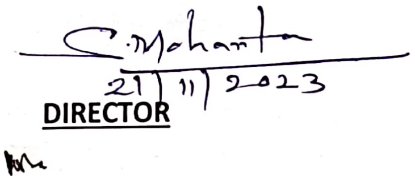 C. Mohanta
21/11/2023
DIRECTOR